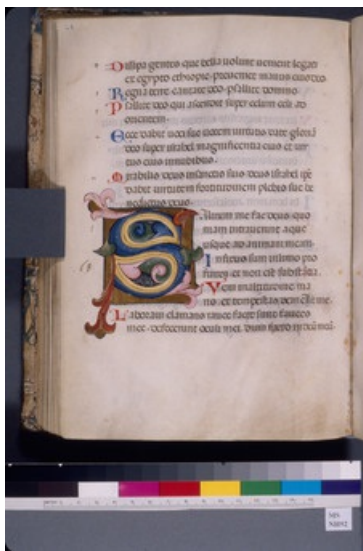 Dissipa gentes que bella uolunt uenient legati
ex egypto ethiopie preueniet manus eius deo
Regna terre cantate deo psallite domino
Psallite deo qui ascendit super celum celi ad
orientem.
Ecce dabit uoci sue uocem uirtutis date gloriã
deo super israhel magnificentia eius et uir
tus eius in nubibus.
Mirabilis deus in sanctis suis deus israhel ipẽ
dabit uirtutem fortitudinem plebis sue be
nedictus deus.
Saluum me fac deus quo
niam intrauerunt aque
usque ad animam meam.
Infixus sum in limo pro
fundi et non est substãtia.
Veni in altitudine ma
ris et tempestas me.
Laboraui clamans rauce facte sunt fauces
mee defecerunt oculi mei dum spero in deũ meũ
MS